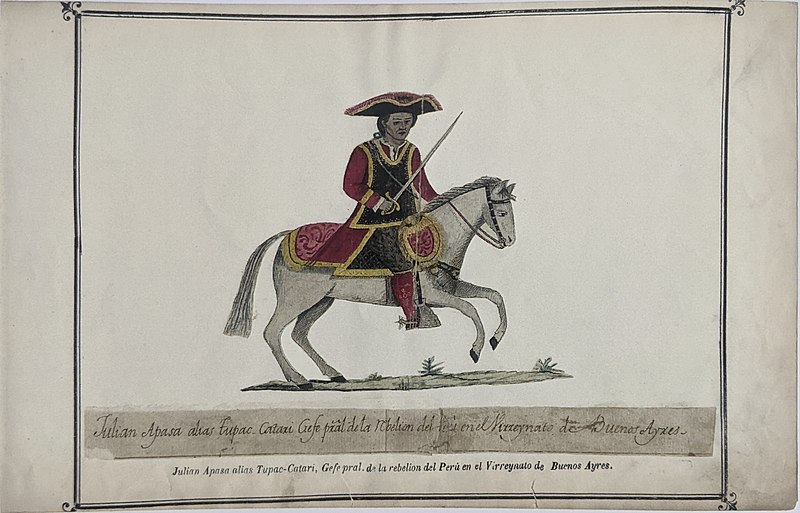 Julian Apasa alias Tupac-Catari Gefe prãl de la rebelion del Perú en el Virreynato de Buenos Ayres-
Julian Apasa alias Tupac-Catari, Gefe pral. de la rebelion del Perú en el Virreynato de Buenos Ayres.